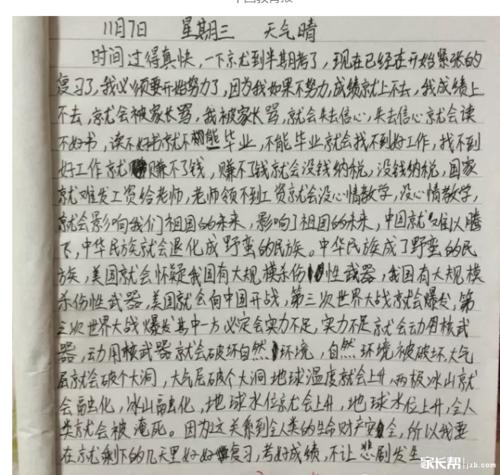 11月7日 星期三 天气晴
时间过得真快，一下就到半期考了，现在已经在开始紧张的
复习了，我必须要开始努力了，因为我如果不努力，成绩就上不去，我成绩上
不去，就会被家长骂，我被家长骂，就会失去信心，失去信心就会读
不好书，读不好书就不能毕业，不能毕业就会找不到好工作，找不到
好工作就赚不了钱，赚不了钱就会没钱纳税，没钱纳税，国家
就难发工资给老师，老师领不到工资就会没心情教学，没心情教学，
就会影响我们祖国的未来，影响了祖国的未来，中国就难以腾
飞，中华民族就会退化成野蛮的民族。中华民族成了野蛮的民
族，美国就会怀疑我国有大规模杀伤性武器，我国有大规模
杀伤性武器，美国就会向中国开战，第三次世界大战就会爆发，第
三次世界大战爆发其中一方必定会实力不足，实力不足就会动用核武
器，动用核武器就会破坏自然环境，自然环境被破坏，大气
层就会破个大洞，大气层破个大洞地球温度就会上升，两极冰山就
会融化，冰山融化，地球水位就会上升，地球水位上升，全人
类就会被淹死。因为这关系到全人类的生命财产安全，所以我要
在就剩下的几天里好好复习，考好成绩，不让悲剧发生
家长帮 jzb.com